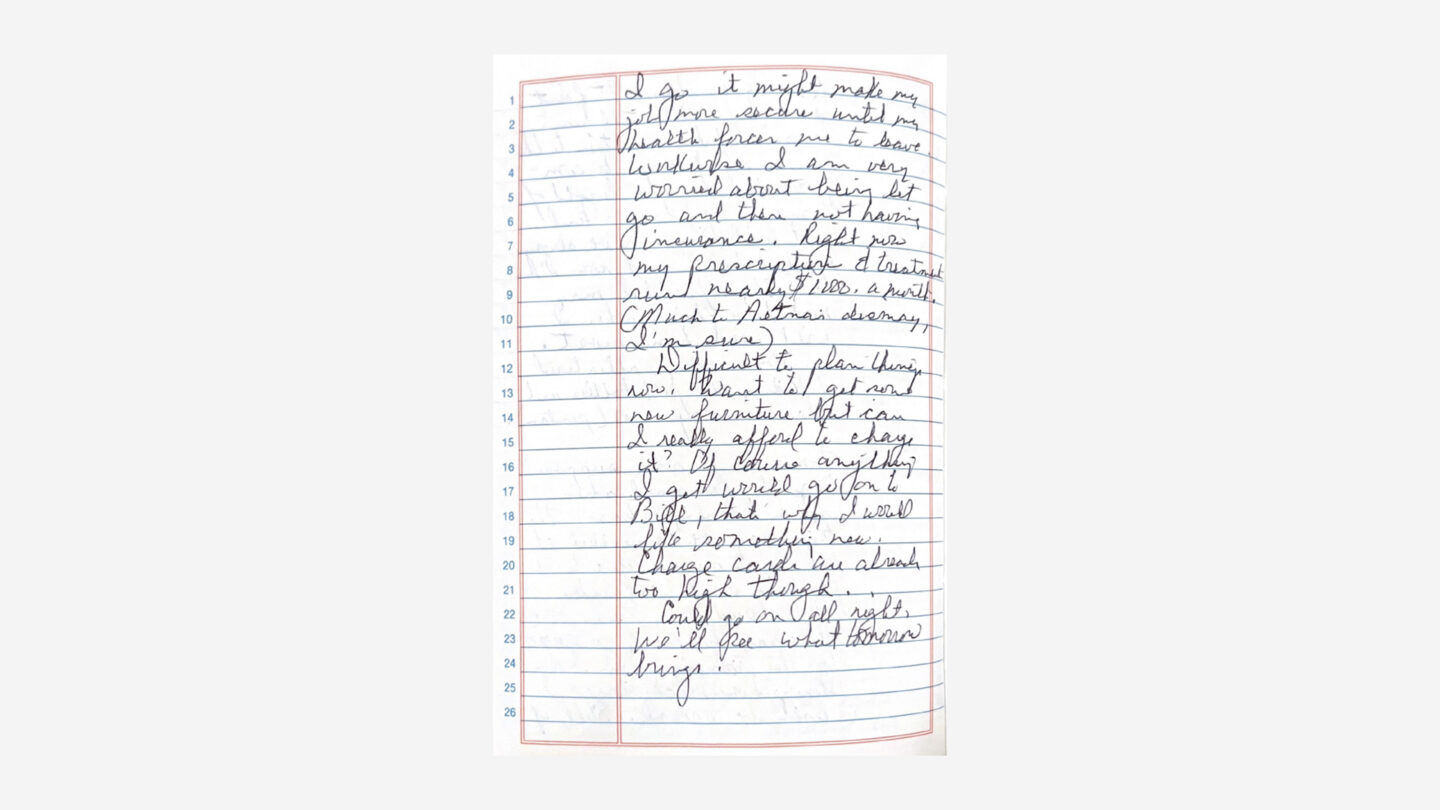 1
2
3
4
5
6
7
8
9
10
11
12
13
14
15
16
17
18
19
20
21
22
23
24
25
26
I go it might make my
job more secure until my
health forces me to leave.
Workwise I am very
worried about being let
go and then not having
insurance. Right now
my prescription & treatment
run nearly $1000. a month.
(Much to Aetna's dismay,
I'm sure)
Difficult to plan things
now. Want to get some
new furniture but can
I really afford to charge
it? Of course anything
I get would go on to
Bill, that's why I would
like something new.
Charge cards are already
too high though.
Could go on all night.
We'll see what tomorrow
brings.